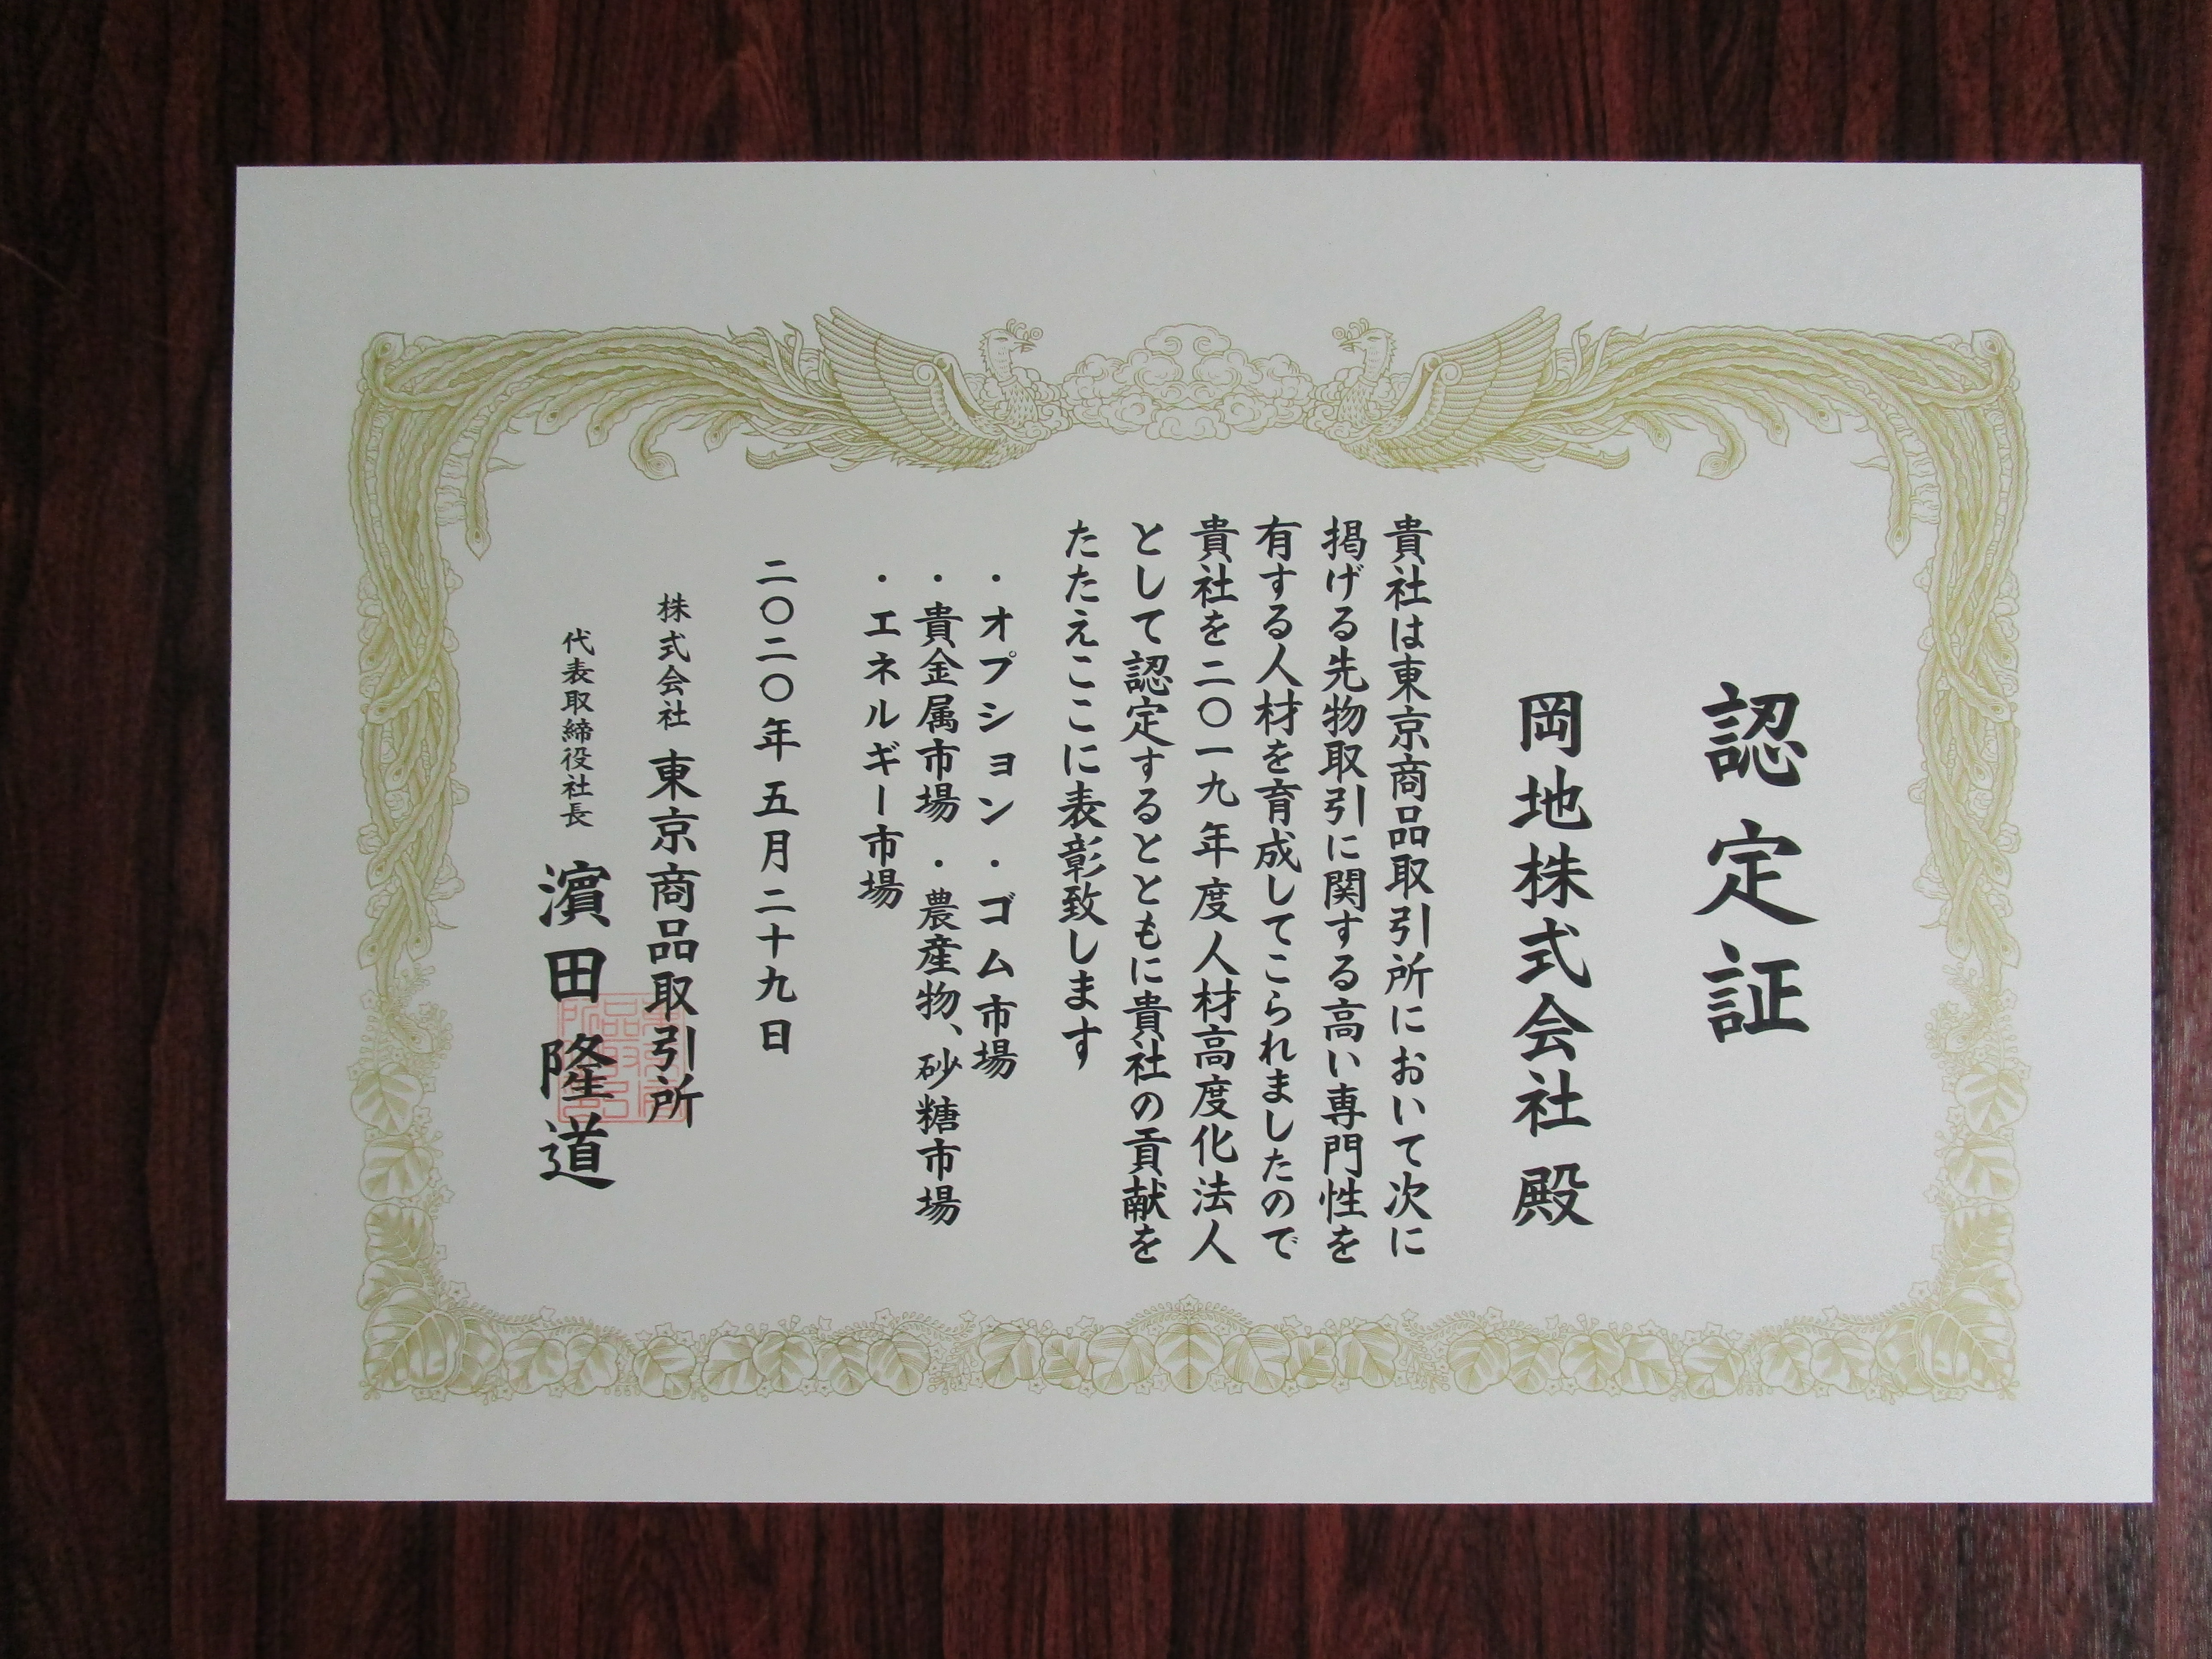 認定証
岡地株式会社 殿
貴社は東京商品取引所において次に
掲げる先物取引に関する高い専門性を
有する人材を育成してこられましたので
貴社を二〇一九年度人材高度化法人
として認定するとともに貴社の貢献を
たたえここに表彰致します
・オプション・ゴム市場
・貴金属市場・農産物、砂糖市場
・エネルギー市場
二〇二〇年五月二十九日
株式会社 東京商品取引所
代表取締役社長 濱田隆道